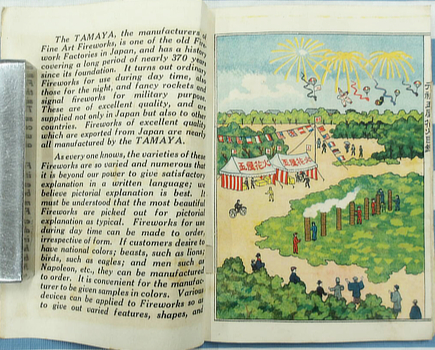 The TAMAYA, the manufacturers of
Fine Art Fireworks, is one of the old Fire-
work Factories in Japan, and has a history
covering a long period of nearly 370 years
since its foundation. It turns out ordinary
Fireworks for use during day time, also
those for the night, and fancy rockets and
signal fireworks for military purpose.
These are of excellent quality, and are
supplied not only in Japan but also to other
countries. Fireworks of excellent quality
which are exported from Japan are nearly
all manufactured by the TAMAYA.
As every one knows, the varieties of these
Fireworks are so varied and numerous that
it is beyond our power to give satisfactory
explanation in a written language; we
believe pictorial explanation is best. It
must be understood that the most beautiful
Fireworks are picked out for pictorial
explanation as typical. Fireworks for use
during day time can be made to order,
irrespective of form. If customers desire to
have national colors; beasts, such as lions;
birds, such as eagles; and men such as
Napoleon, etc., they can be manufactured
to order. It is convenient for the manufac-
turer to be given samples in colors. Various
devices can be applied to Fireworks so as
to give out varied features, shapes, and
玉屋花火
玉屋花火